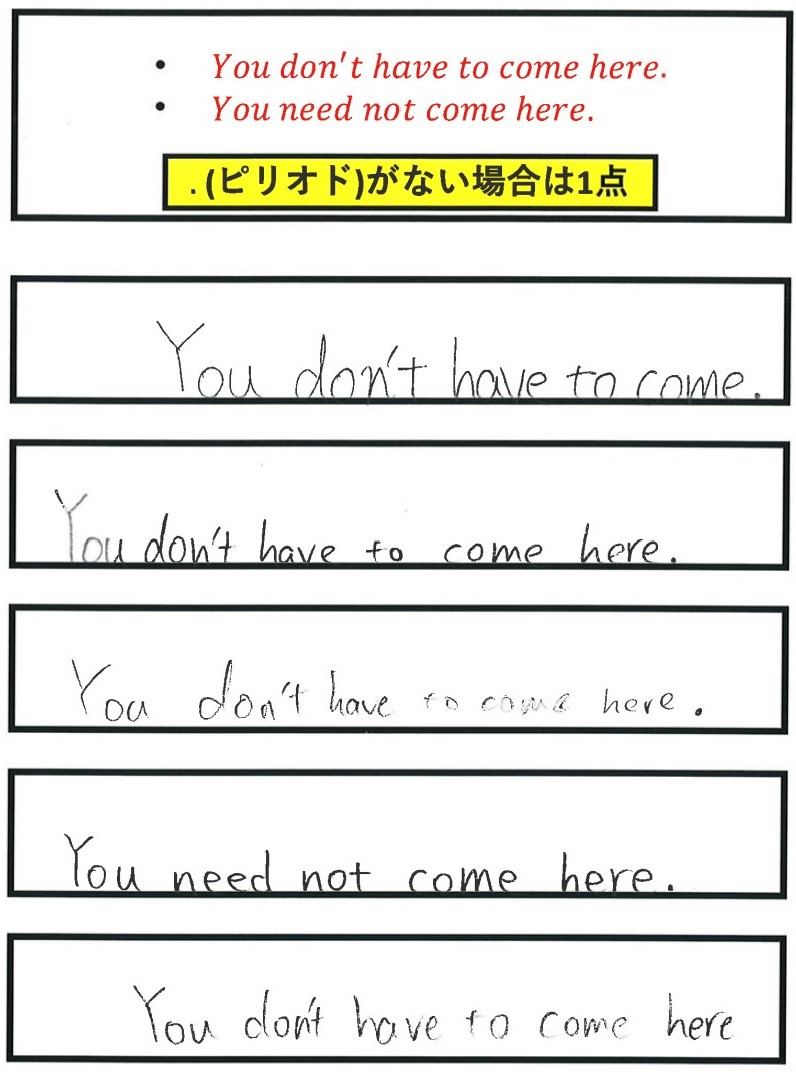 • You don't have to come here.
• You need not come here.
. (ピリオド)がない場合は1点
You don't have to come.
You don't have to come here.
You don't have to come here.
You need not come here.
You don't have to come here